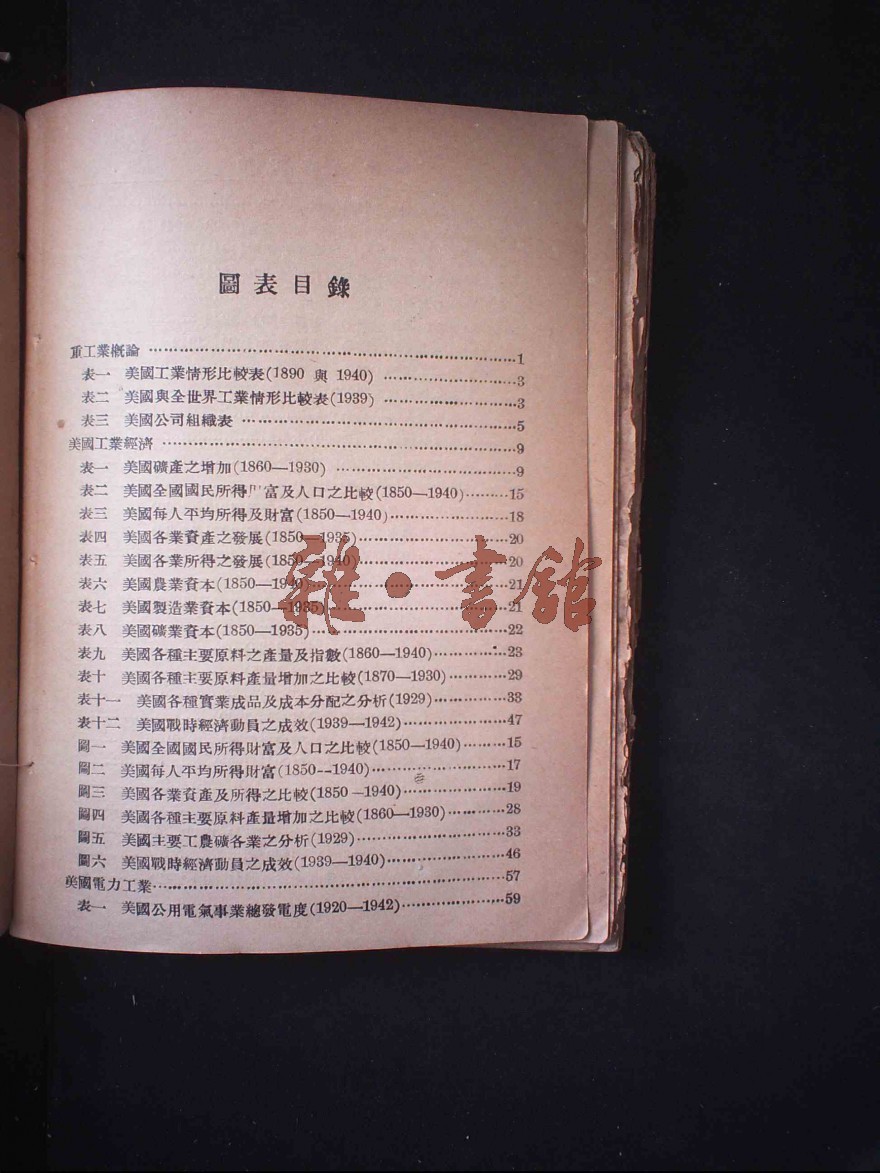 圖表目錄
重工業概論 ································1
表一 美國工業情形比較表(1890 與 1940) ················3
表二 美國與全世界工業情形比較表(1939) ················3
表三 美國公司組織表 ································5
美國工業經濟 ································9
表一 美國礦產之增加(1860—1930) ················9
表二 美國全國國民所得 富及人口之比較(1850—1940)·········15
表三 美國每人平均所得及財富(1850—1940)················18
表四 美國各業資產之發展(1850—1935)················20
表五 美國各業所得之發展(1850—1940)················20
表六 美國農業資本(1850—1940)················21
表七 美國製造業資本(1850—1935)················21
表八 美國礦業資本(1850—1935)················22
表九 美國各種主要原料之產量及指數(1860—1940)················23
表十 美國各種主要原料產量增加之比較(1870—1930)············29
表十一 美國各種實業成品及成本分配之分析(1929)············33
表十二 美國戰時經濟動員之成效(1939—1942)················47
圖一 美國全國國民所得財富及人口之比較(1850—1940)·········15
圖二 美國每人平均所得財富(1850--1940)················17
圖三 美國各業資產及所得之比較(1850—1940)················19
圖四 美國各種主要原料產量增加之比較(1860—1930)············28
圖五 美國主要工農礦各業之分析(1929)················33
圖六 美國戰時經濟動員之成效(1939—1940)················46
美國電力工業································57
表一 美國公用電氣事業總發電度(1920—1942)················59
雜·書館